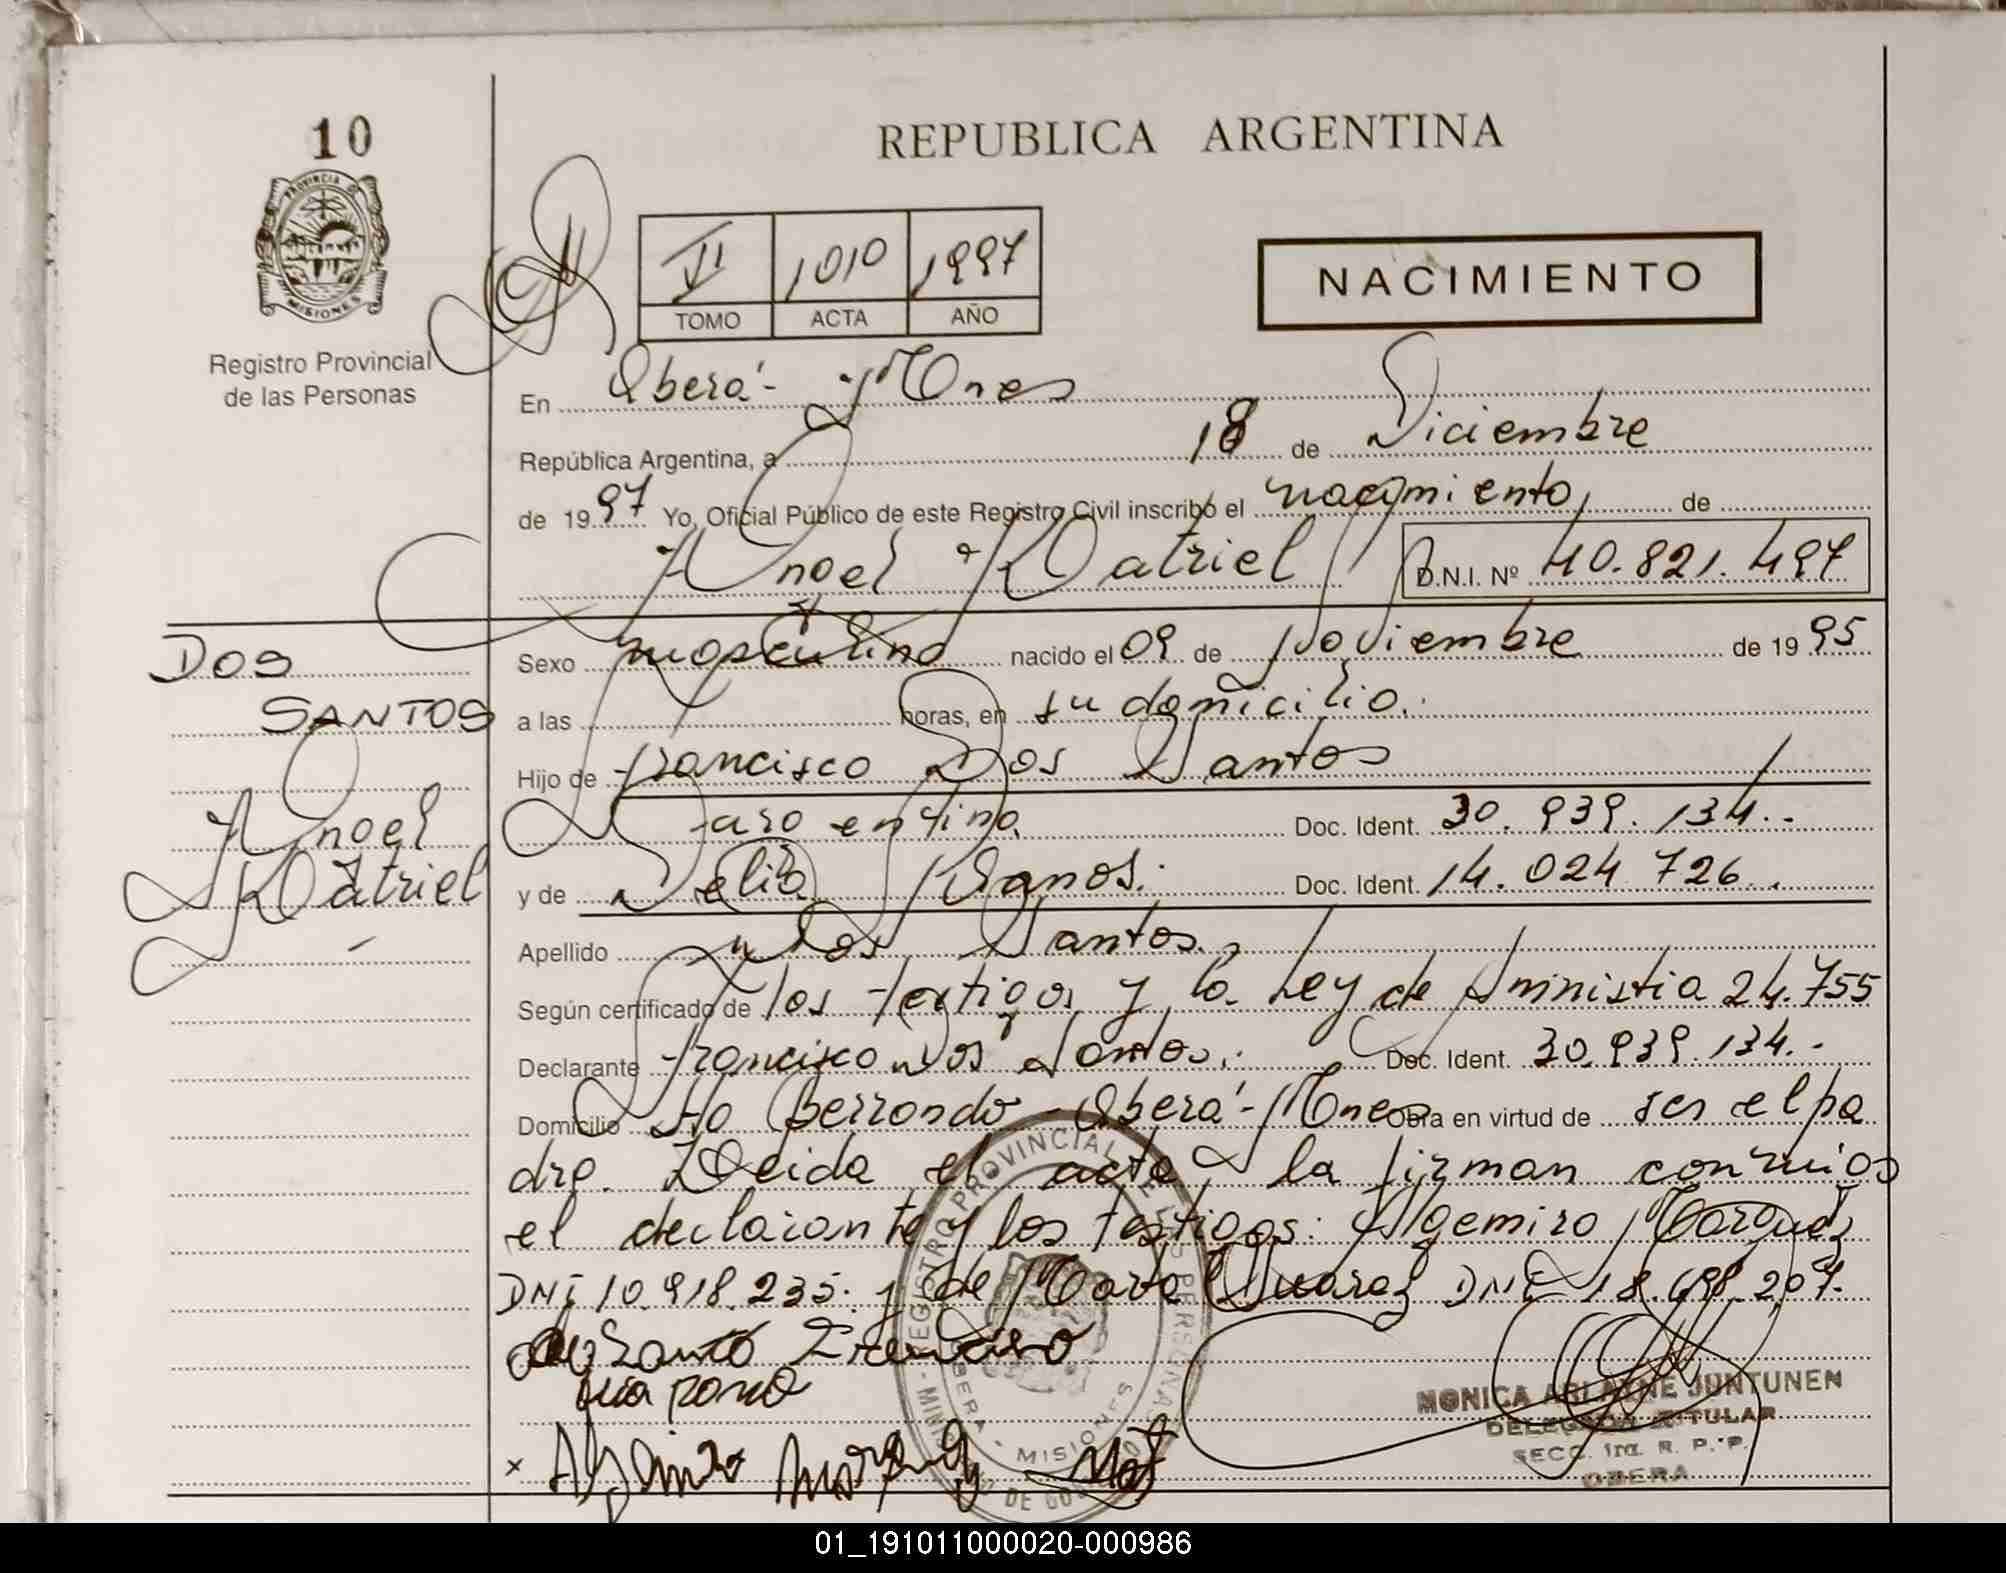 10
REPUBLICA ARGENTINA
PROVINCIA DE
MISIONES
Registro Provincial
de las Personas
VI 1010 1997
TOMO ACTA AÑO
NACIMIENTO
En Oberá - Mnes
República Argentina, a 18 de Diciembre
de 1997 Yo, Oficial Público de este Registro Civil inscribo el nacimiento, de
Noel Matriel D.N.I. Nº 40.821.497
DOS
SANTOS
Noel
Matriel
Sexo masculino nacido el 09 de Noviembre de 1995
a las horas, en su domicilio.
Hijo de Francisco Dos Santos
argentino Doc. Ident. 30.939.134.-
y de Delia Doc. Ident. 14.024.726.
Apellido Dos Santos.
Según certificado de los testigos y la Ley de Amnistia 24.755
Declarante Francisco Dos Santos. Doc. Ident. 30.939.134.-
Domicilio Berrondo - Oberá - Mnes Obra en virtud de ser el pa
dre. Leida el acta, la firman conmigo
el declarante y los testigos: Algemiro Marquez
DNI 10.918.235. y de Suarez DNI 18.698.207.
REGISTRO PROVINCIAL DE LAS PERSONAS
OBERA - MISIONES
MONICA ARLAINE JUNTUNEN
DELEGADO TITULAR
SECC. 1ra. R. P. P.
OBERA
01_191011000020-000986